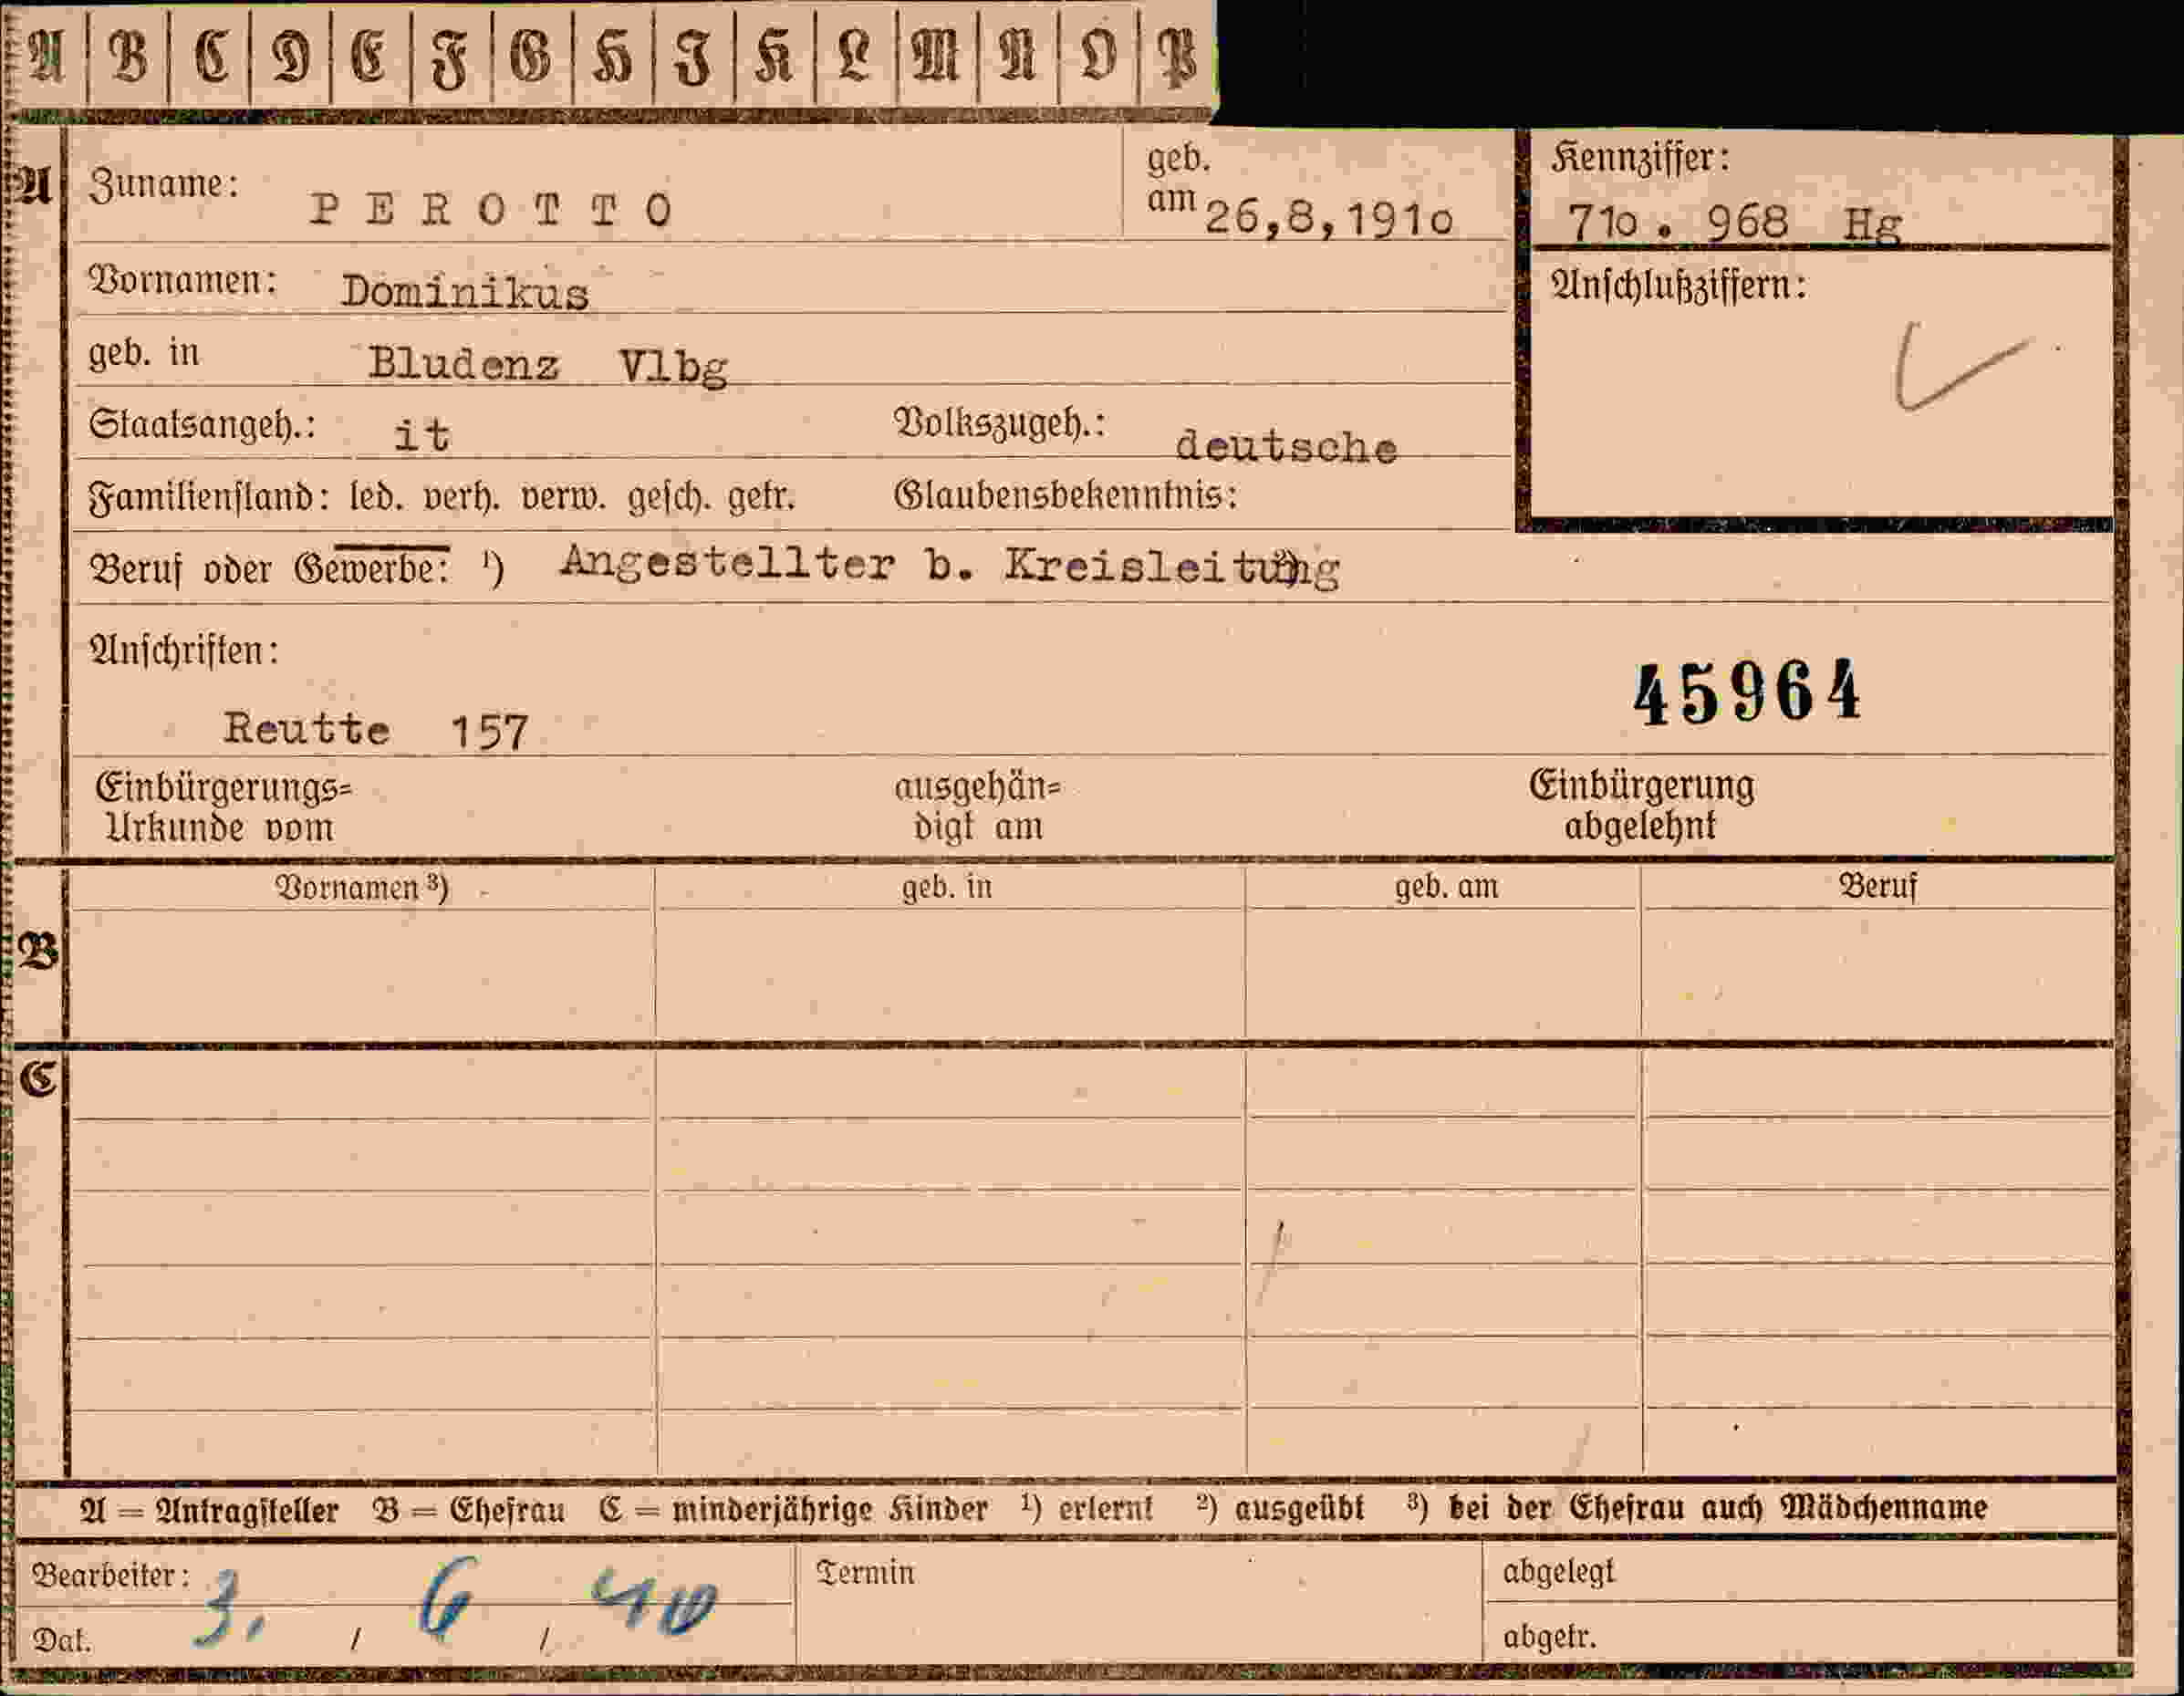 A B C D E F G H I K L M N O P
A Zuname: PEROTTO geb. am 26,8,1910 Kennziffer: 710. 968 Hg
Vornamen: Dominikus Anschlußziffern:
geb. in Bludenz Vlbg
Staatsangeh.: it Volkszugeh.: deutsche
Familienstand: led. verh. verw. gesch. getr. Glaubensbekenntnis:
Beruf oder Gewerbe: ¹) Angestellter b. Kreisleitung ²)
Anschriften:
45964
Reutte 157
Einbürgerungs=
Urkunde vom
ausgehän=
digt am
Einbürgerung
abgelehnt
B Vornamen ³) geb. in geb. am Beruf
C
A = Antragsteller B = Ehefrau C = minderjährige Kinder ¹) erlernt ²) ausgeübt ³) bei der Ehefrau auch Mädchenname
Bearbeiter: Termin abgelegt
Dat. 3. / 6 / 40 abgetr.